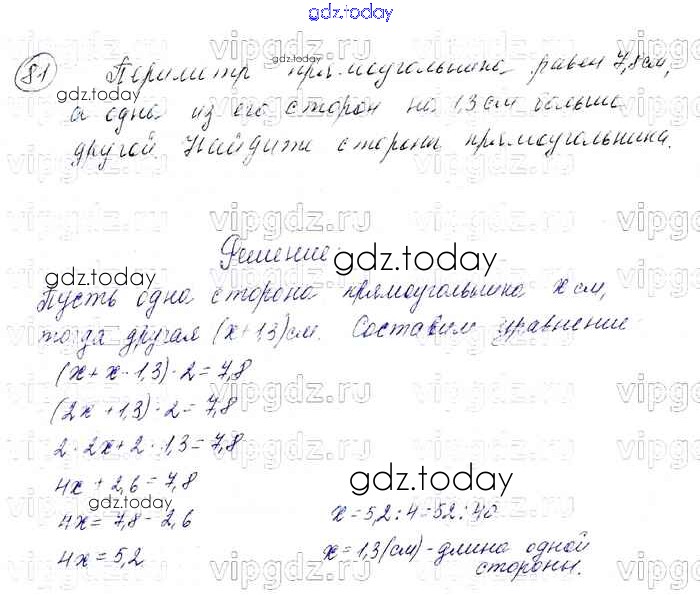 gdz.today
81 Периметр прямоугольника равен 7,8 см,
а одна из его сторон на 1,3 см больше
другой. Найдите стороны прямоугольника.
Решение:
Пусть одна сторона прямоугольника x см,
тогда другая (x+1,3) см. Составим уравнение
(x+x-1,3)·2=7,8
(2x+1,3)·2=7,8
2·2x+2·1,3=7,8
4x+2,6=7,8
4x=7,8-2,6
4x=5,2
x=5,2:4=52:40
x=1,3(см)-длина одной
стороны.
gdz.today
gdz.today
gdz.today
gdz.today
gdz.today
vipgdz.ru
vipgdz.ru
vipgdz.ru